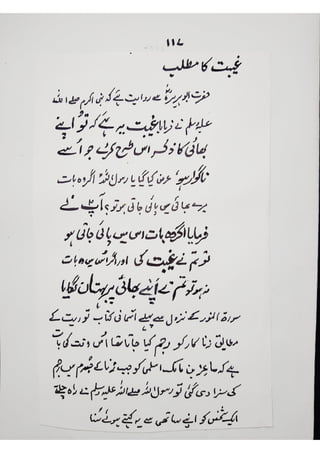 ۱۱۷
غیبت کا مطلب
حضرت ابو ہریرہؓ سے روایت ہے کہ نبی اکرم صلے اللہ
علیہ وسلم نے فرمایا غیبت یہ ہے کہ تو اپنے
بھائی کا ذکر اس طرح کرے جو اسے
ناگوار ہو، عرض کیا گیا یا رسول اللہؐ اگر وہ بات
میرے بھائی میں پائی جاتی ہو تو؟ آپؐ نے
فرمایا اگر وہ بات اس میں پائی جاتی ہو
تو تم نے غیبت کی اور اگر اس میں وہ بات
نہ ہو تو تم نے اپنے بھائی پر بہتان لگایا
سورۃ النور کے نزول سے پہلے آسمانی کتاب توریت کے
مطابق زنا کار کو رجم کیا جاتا تھا اس وقت کی بات
ہے کہ ماعز بن مالک اسلمی کو جب زنا کے جرم میں رجم
کی سزا دی گئی تو رسول اللہ صلے اللہ علیہ وسلم نے راہ چلتے
ایک شخص کو اپنے ساتھی سے یہ کہتے ہوئے سنا